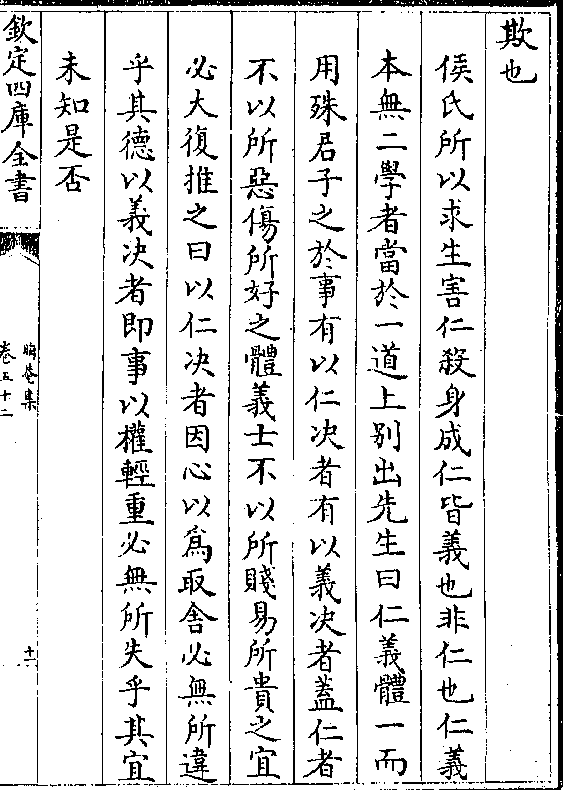 欺也
侯氏所以求生害仁殺身成仁皆義也非仁也仁義
本無二學者當於一道上别出先生曰仁義體一而
用殊君子之於事有以仁决者有以義决者蓋仁者
不以所惡傷所好之體義士不以所賤易所貴之宜
必大復推之曰以仁决者因心以為取舍必無所違
乎其德以義决者即事以權輕重必無所失乎其宜
未知是否
欽定四庫全書
晦菴集
卷五十二
十一